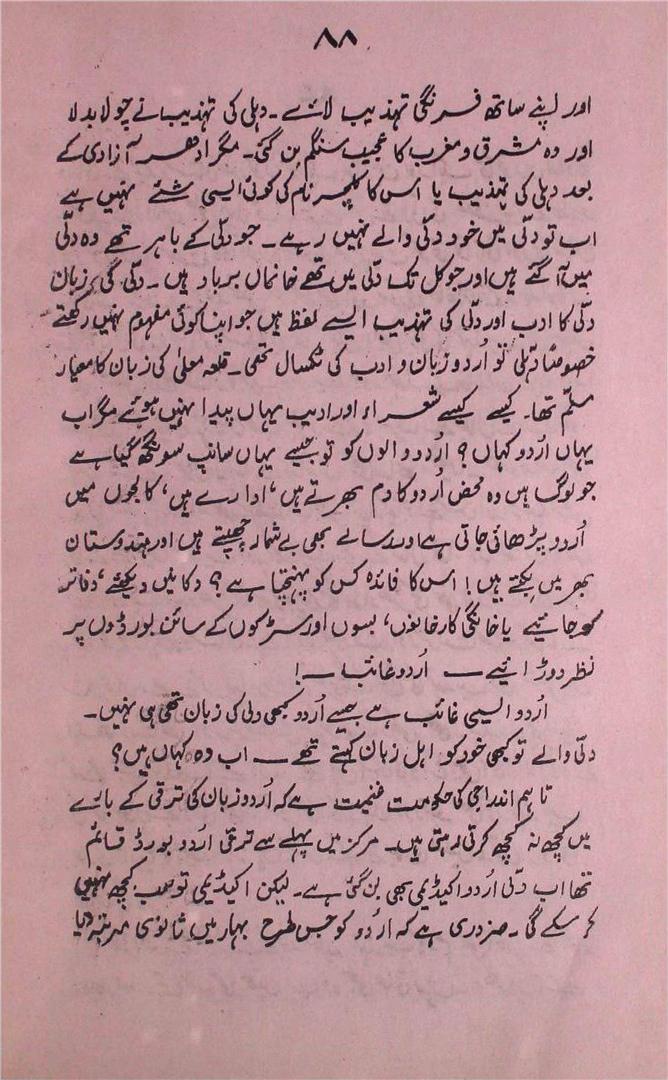 ۸۸
اور اپنے ساتھ فرنگی تہذیب لائے۔ دہلی کی تہذیب نے چولا بدلا
اور وہ مشرق و مغرب کا عجیب سنگم بن گئی۔ مگر ادھر آزادی کے
بعد دہلی کی تہذیب یا اس کا کلچر نام کی کوئی ایسی شئے نہیں ہے
اب تو دلّی میں خود دلّی والے نہیں رہے۔ جو دلّی کے باہر تھے وہ دلّی
میں آ گئے ہیں اور جو کل تک دلّی میں تھے خانماں برباد ہیں۔ دلّی کی زبان
دلّی کا ادب اور دلّی کی تہذیب ایسے لفظ ہیں جو اپنا کوئی مفہوم نہیں رکھتے
خصوصًا دہلی تو اُردو زبان و ادب کی ٹکسال تھی۔ قلعہ معلیٰ کی زبان کا معیار
مسلّم تھا۔ کیسے کیسے شعراء اور ادیب یہاں پیدا نہیں ہوئے مگر اب
یہاں اُردو کہاں؟ اُردو والوں کو تو جیسے یہاں سانپ سونگھ گیا ہے
جو لوگ ہیں وہ محض اُردو کا دم بھرتے ہیں، ادارے ہیں، کالجوں میں
اُردو پڑھائی جاتی ہے اور رسالے بھی بے شمار چھپتے ہیں اور ہندوستان
بھر میں بکتے ہیں! اس کا فائدہ کس کو پہنچتا ہے؟ دکانیں دیکھئے، دفاتر
جائیے یا خانگی کارخانوں، بسوں اور سڑکوں کے سائن بورڈوں پر
نظر دوڑائیے — اُردو غائب —!
اُردو ایسی غائب ہے جیسے اُردو کبھی دلی کی زبان تھی ہی نہیں۔
دلّی والے تو کبھی خود کو اہل زبان کہتے تھے — اب وہ کہاں ہیں؟
تاہم اندراجی کی حکومت غنیمت ہے کہ اُردو زبان کی ترقی کے بارے
میں کچھ نہ کچھ کرتی رہتی ہیں۔ مرکز میں پہلے سے ترقی اُردو بورڈ قائم
تھا اب دلّی اُردو اکیڈیمی بھی بن گئی ہے۔ لیکن اکیڈیمی تو سب کچھ نہیں
کر سکے گی۔ ضروری ہے کہ اُردو کو جس طرح بہار میں ثانوی مرتبہ دیا